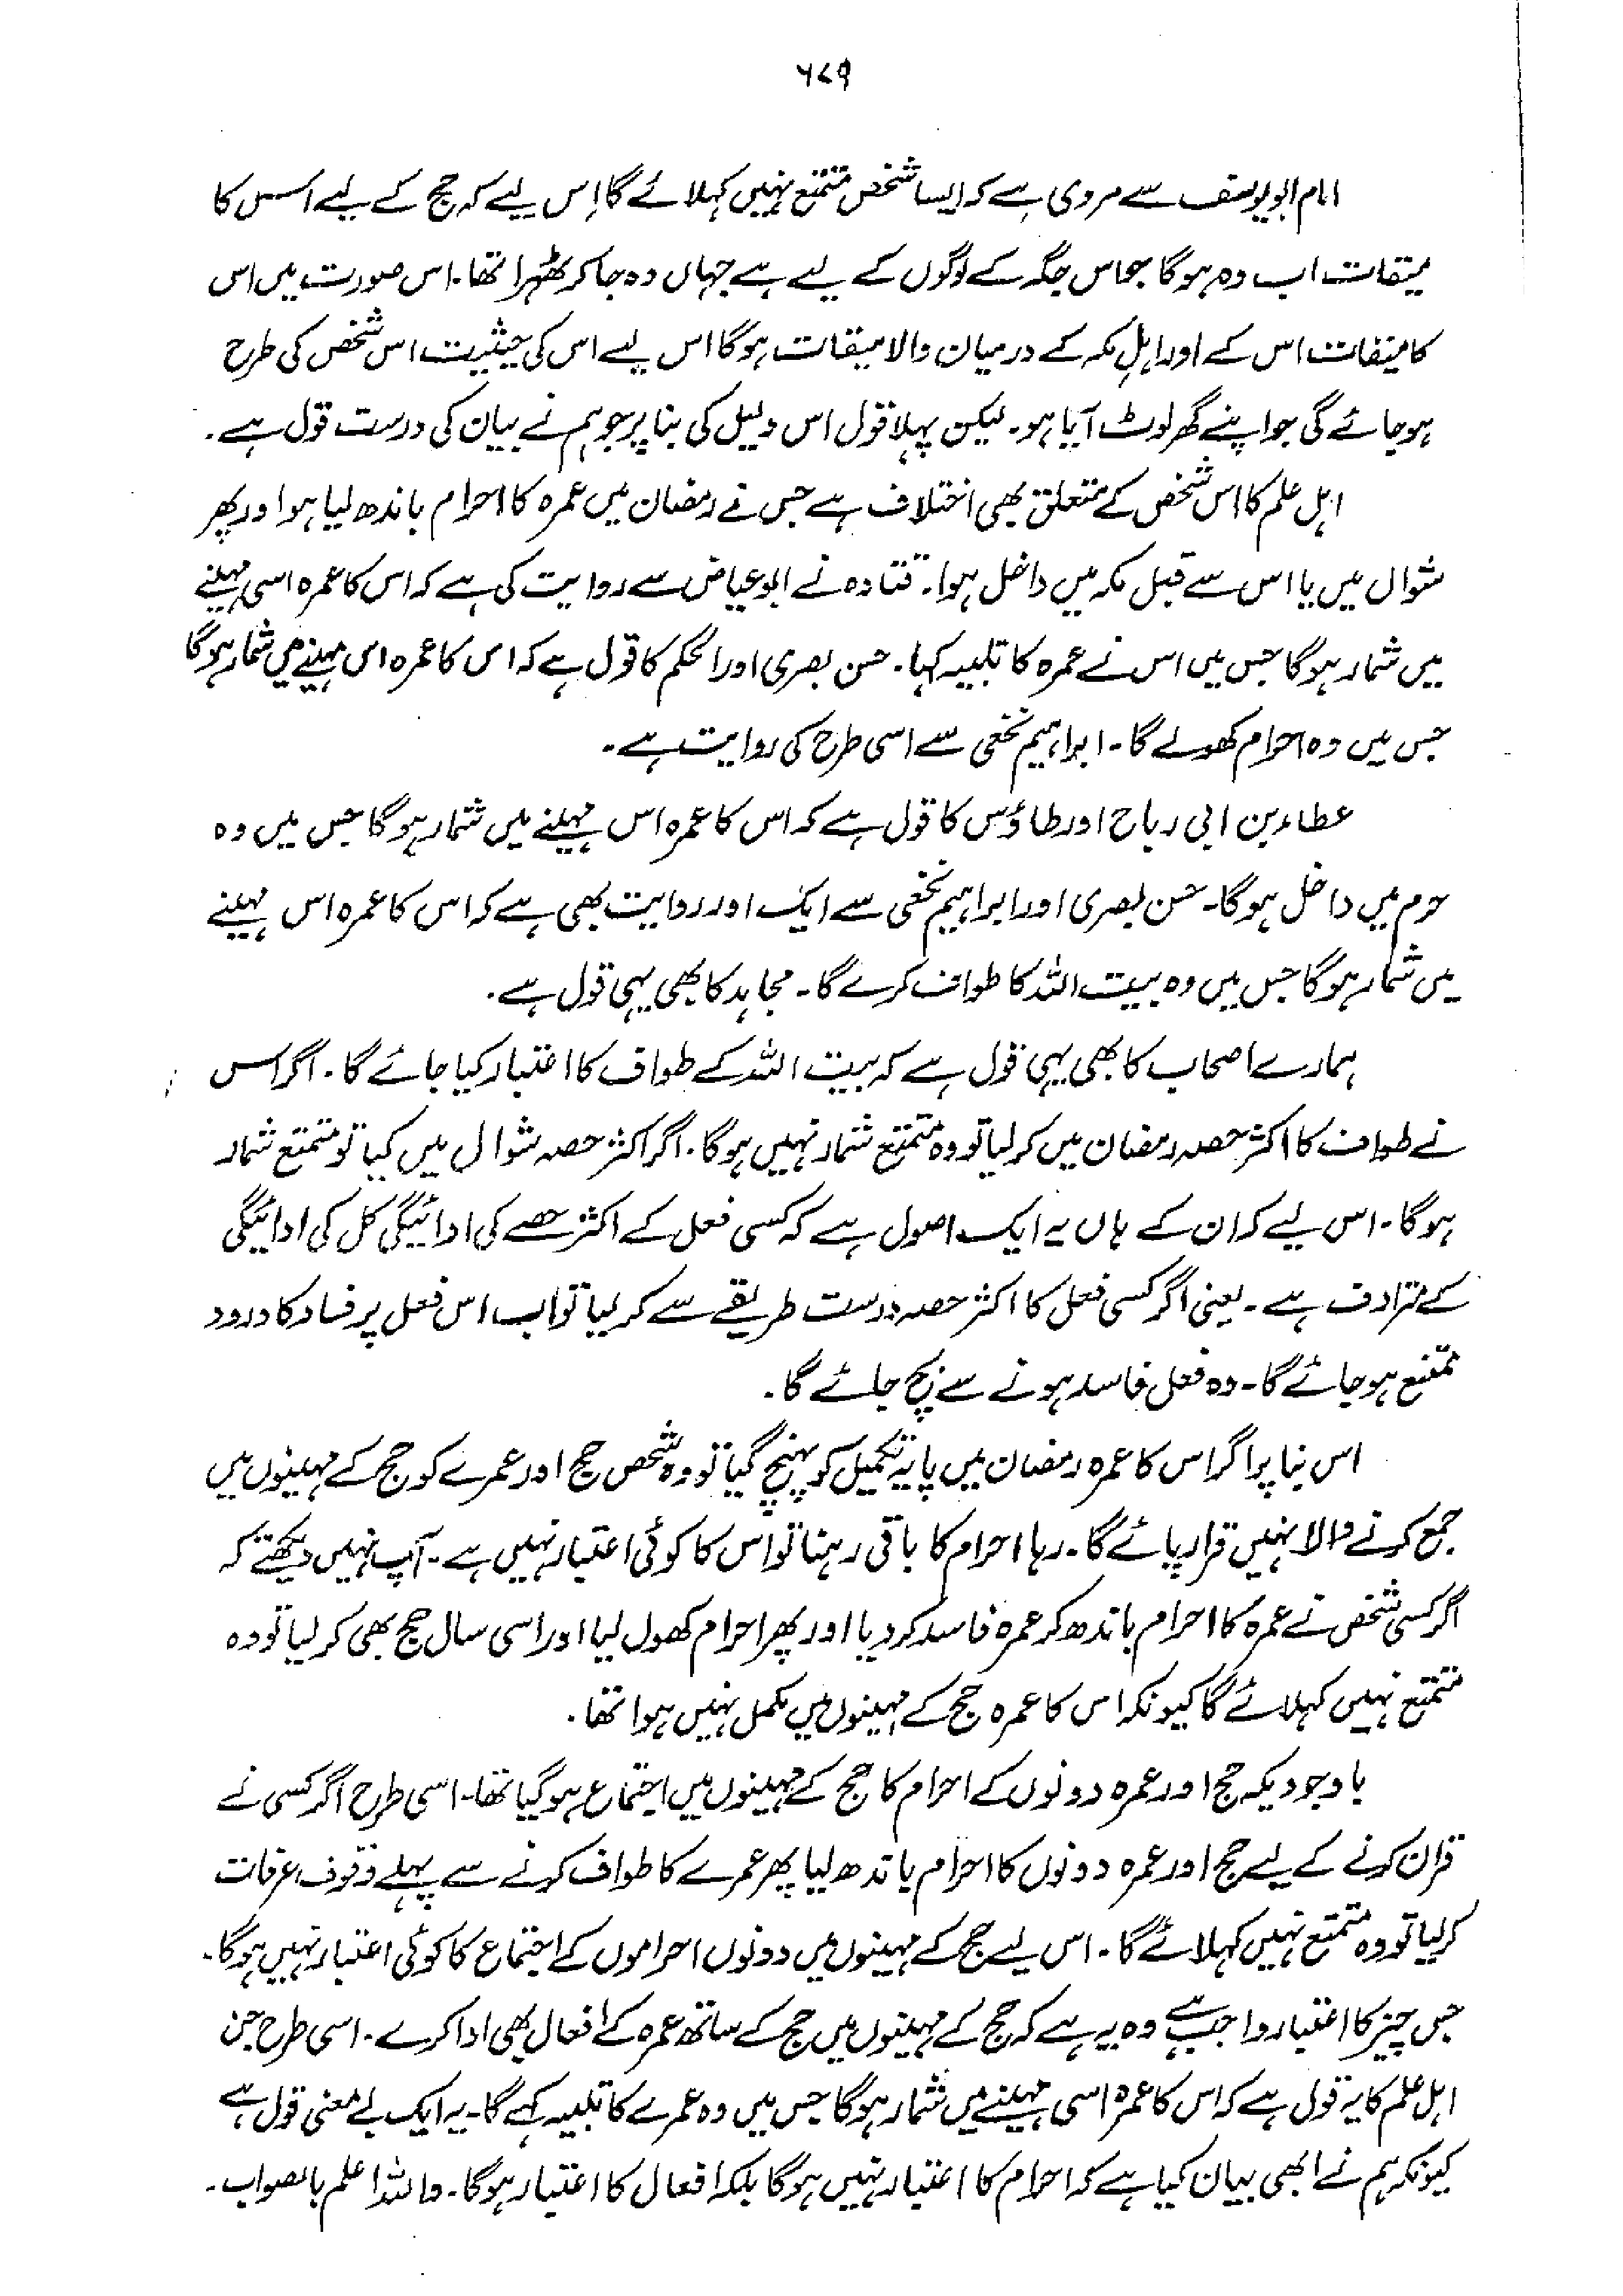 ۶۷۹
امام ابویوسف سے مروی ہے کہ ایسا شخص متمتع نہیں کہلائے گا اِس لیے کہ حج کے لیے اس کا
میقات اب وہ ہوگا جو اس جگہ کے لوگوں کے لیے ہے جہاں وہ جا کر ٹھہرا تھا۔ اس صورت میں اس
کا میقات اس کے اور اہلِ مکہ کے درمیان والا میقات ہوگا اس لیے اس کی حیثیت اس شخص کی طرح
ہوجائے گی جو اپنے گھر لوٹ آیا ہو۔ لیکن پہلا قول اس دلیل کی بنا پر جو ہم نے بیان کی درست قول ہے۔
اہل علم کا اس شخص کے متعلق بھی اختلاف ہے جس نے رمضان میں عمرہ کا احرام باندھ لیا ہو اور پھر
شوال میں یا اس سے قبل مکہ میں داخل ہوا۔ قتادہ نے ابوعیاض سے روایت کی ہے کہ اس کا عمرہ اسی مہینے
میں شمار ہوگا جس میں اس نے عمرہ کا تلبیہ کہا۔ حسن بصری اور الحکم کا قول ہے کہ اس کا عمرہ اس مہینے میں شمار ہوگا
جس میں وہ احرام کھولے گا۔ ابراہیم نخعی سے اسی طرح کی روایت ہے۔
عطاء بن ابی رباح اور طاؤس کا قول ہے کہ اس کا عمرہ اس مہینے میں شمار ہوگا جس میں وہ
حرم میں داخل ہوگا۔ حسن بصری اور ابراہیم نخعی سے ایک اور روایت بھی ہے کہ اس کا عمرہ اس مہینے
میں شمار ہوگا جس میں وہ بیت اللہ کا طواف کرے گا۔ مجاہد کا بھی یہی قول ہے۔
ہمارے اصحاب کا بھی یہی قول ہے کہ بیت اللہ کے طواف کا اعتبار کیا جائے گا۔ اگر اس
نے طواف کا اکثر حصہ رمضان میں کر لیا تو وہ متمتع شمار نہیں ہوگا۔ اگر اکثر حصہ شوال میں کیا تو متمتع شمار
ہوگا۔ اس لیے کہ ان کے ہاں یہ ایک اصول ہے کہ کسی فعل کے اکثر حصے کی ادائیگی کل کی ادائیگی
کے مترادف ہے۔ یعنی اگر کسی فعل کا اکثر حصہ درست طریقے سے کر لیا تو اب اس فعل پر فساد کا ورود
ممتنع ہوجائے گا۔ وہ فعل فاسد ہونے سے بچ جائے گا۔
اس بنا پر اگر اس کا عمرہ رمضان میں پایۂ تکمیل کو پہنچ گیا تو وہ شخص حج اور عمرے کو حج کے مہینوں میں
جمع کرنے والا نہیں قرار پائے گا۔ رہا احرام کا باقی رہنا تو اس کا کوئی اعتبار نہیں ہے۔ آپ نہیں دیکھتے کہ
اگر کسی شخص نے عمرہ کا احرام باندھ کر عمرہ فاسد کر دیا اور پھر احرام کھول لیا اور اسی سال حج بھی کر لیا تو وہ
متمتع نہیں کہلائے گا کیونکہ اس کا عمرہ حج کے مہینوں میں مکمل نہیں ہوا تھا۔
باوجودیکہ حج اور عمرہ دونوں کے احرام کا حج کے مہینوں میں اجتماع ہوگیا تھا۔ اسی طرح اگر کسی نے
قران کرنے کے لیے حج اور عمرہ دونوں کا احرام باندھ لیا پھر عمرے کا طواف کرنے سے پہلے وقوف عرفات
کر لیا تو وہ متمتع نہیں کہلائے گا۔ اس لیے حج کے مہینوں میں دونوں احراموں کے اجتماع کا کوئی اعتبار نہیں ہوگا۔
جس چیز کا اعتبار واجب ہے وہ یہ ہے کہ حج کے مہینوں میں حج کے ساتھ عمرہ کے افعال بھی ادا کرے۔ اسی طرح جن
اہل علم کا یہ قول ہے کہ اس کا عمرہ اسی مہینے میں شمار ہوگا جس میں وہ عمرے کا تلبیہ کہے گا۔ یہ ایک بے معنی قول ہے
کیونکہ ہم نے ابھی بیان کیا ہے کہ احرام کا اعتبار نہیں ہوگا بلکہ افعال کا اعتبار ہوگا۔ واللہ اعلم بالصواب۔